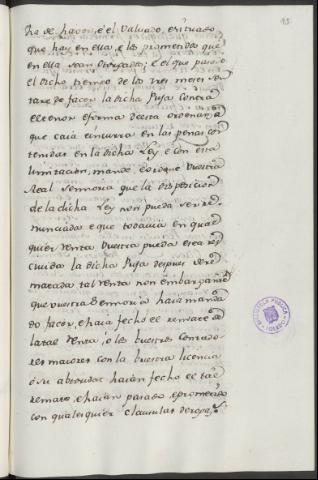 ha de hacer, é el valuado, estrado
que hay en ella, é les prometidos que
en ella sean otorgados; é el que pasado
el dicho tiempo de los tres meses
tare de facer la dicha Puja contra
el tenor é forma de esta ordenanza
que caia é incurra en las penas con
tenidas en la dicha Ley é con esta
limitacion, mande é otorgue vuestra
Real Sennoria que la disposicion
de la dicha Ley non pueda ser re
nunciada é que todavia en qual
quier renta vuestra pueda é sea re
civida la dicha Puja despues de re
matada tal renta non embargante
que vuestra Sennoria haia manda
do facer, é haia fecho el remate de
la tal renta, é los vuestros contado
res maiores con la vuestra licencia
ó su abtoridat haian fecho el tal
remate, é haian pasado é prometido
con qualesquier clausulas derogato
BIBLIOTECA PUBLICA
TOLEDO